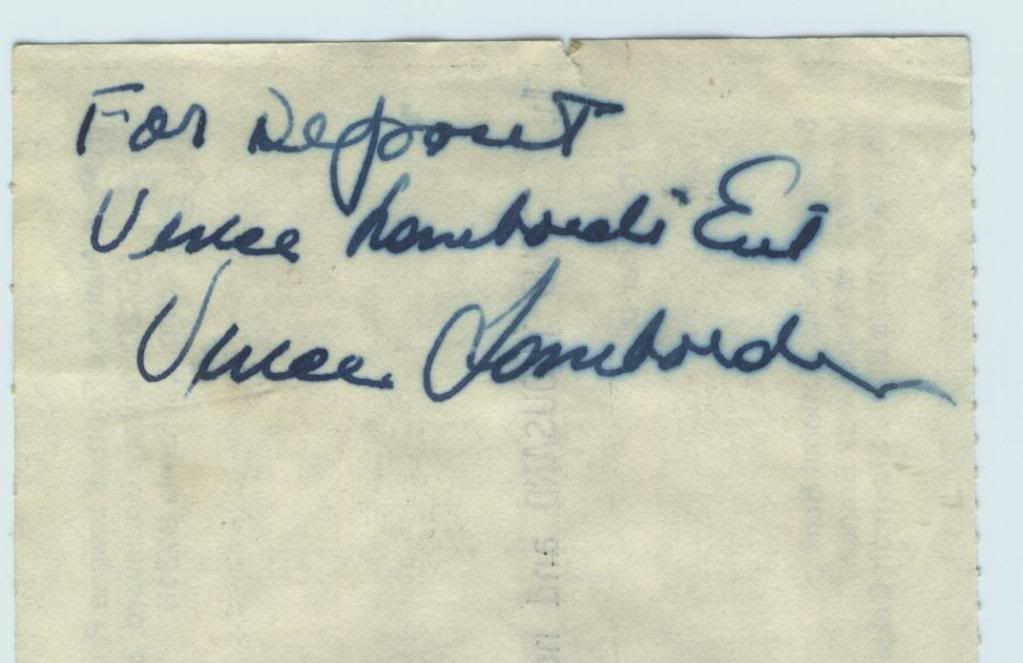 For Deposit
Vince Lombardi Ent
Vince Lombardi